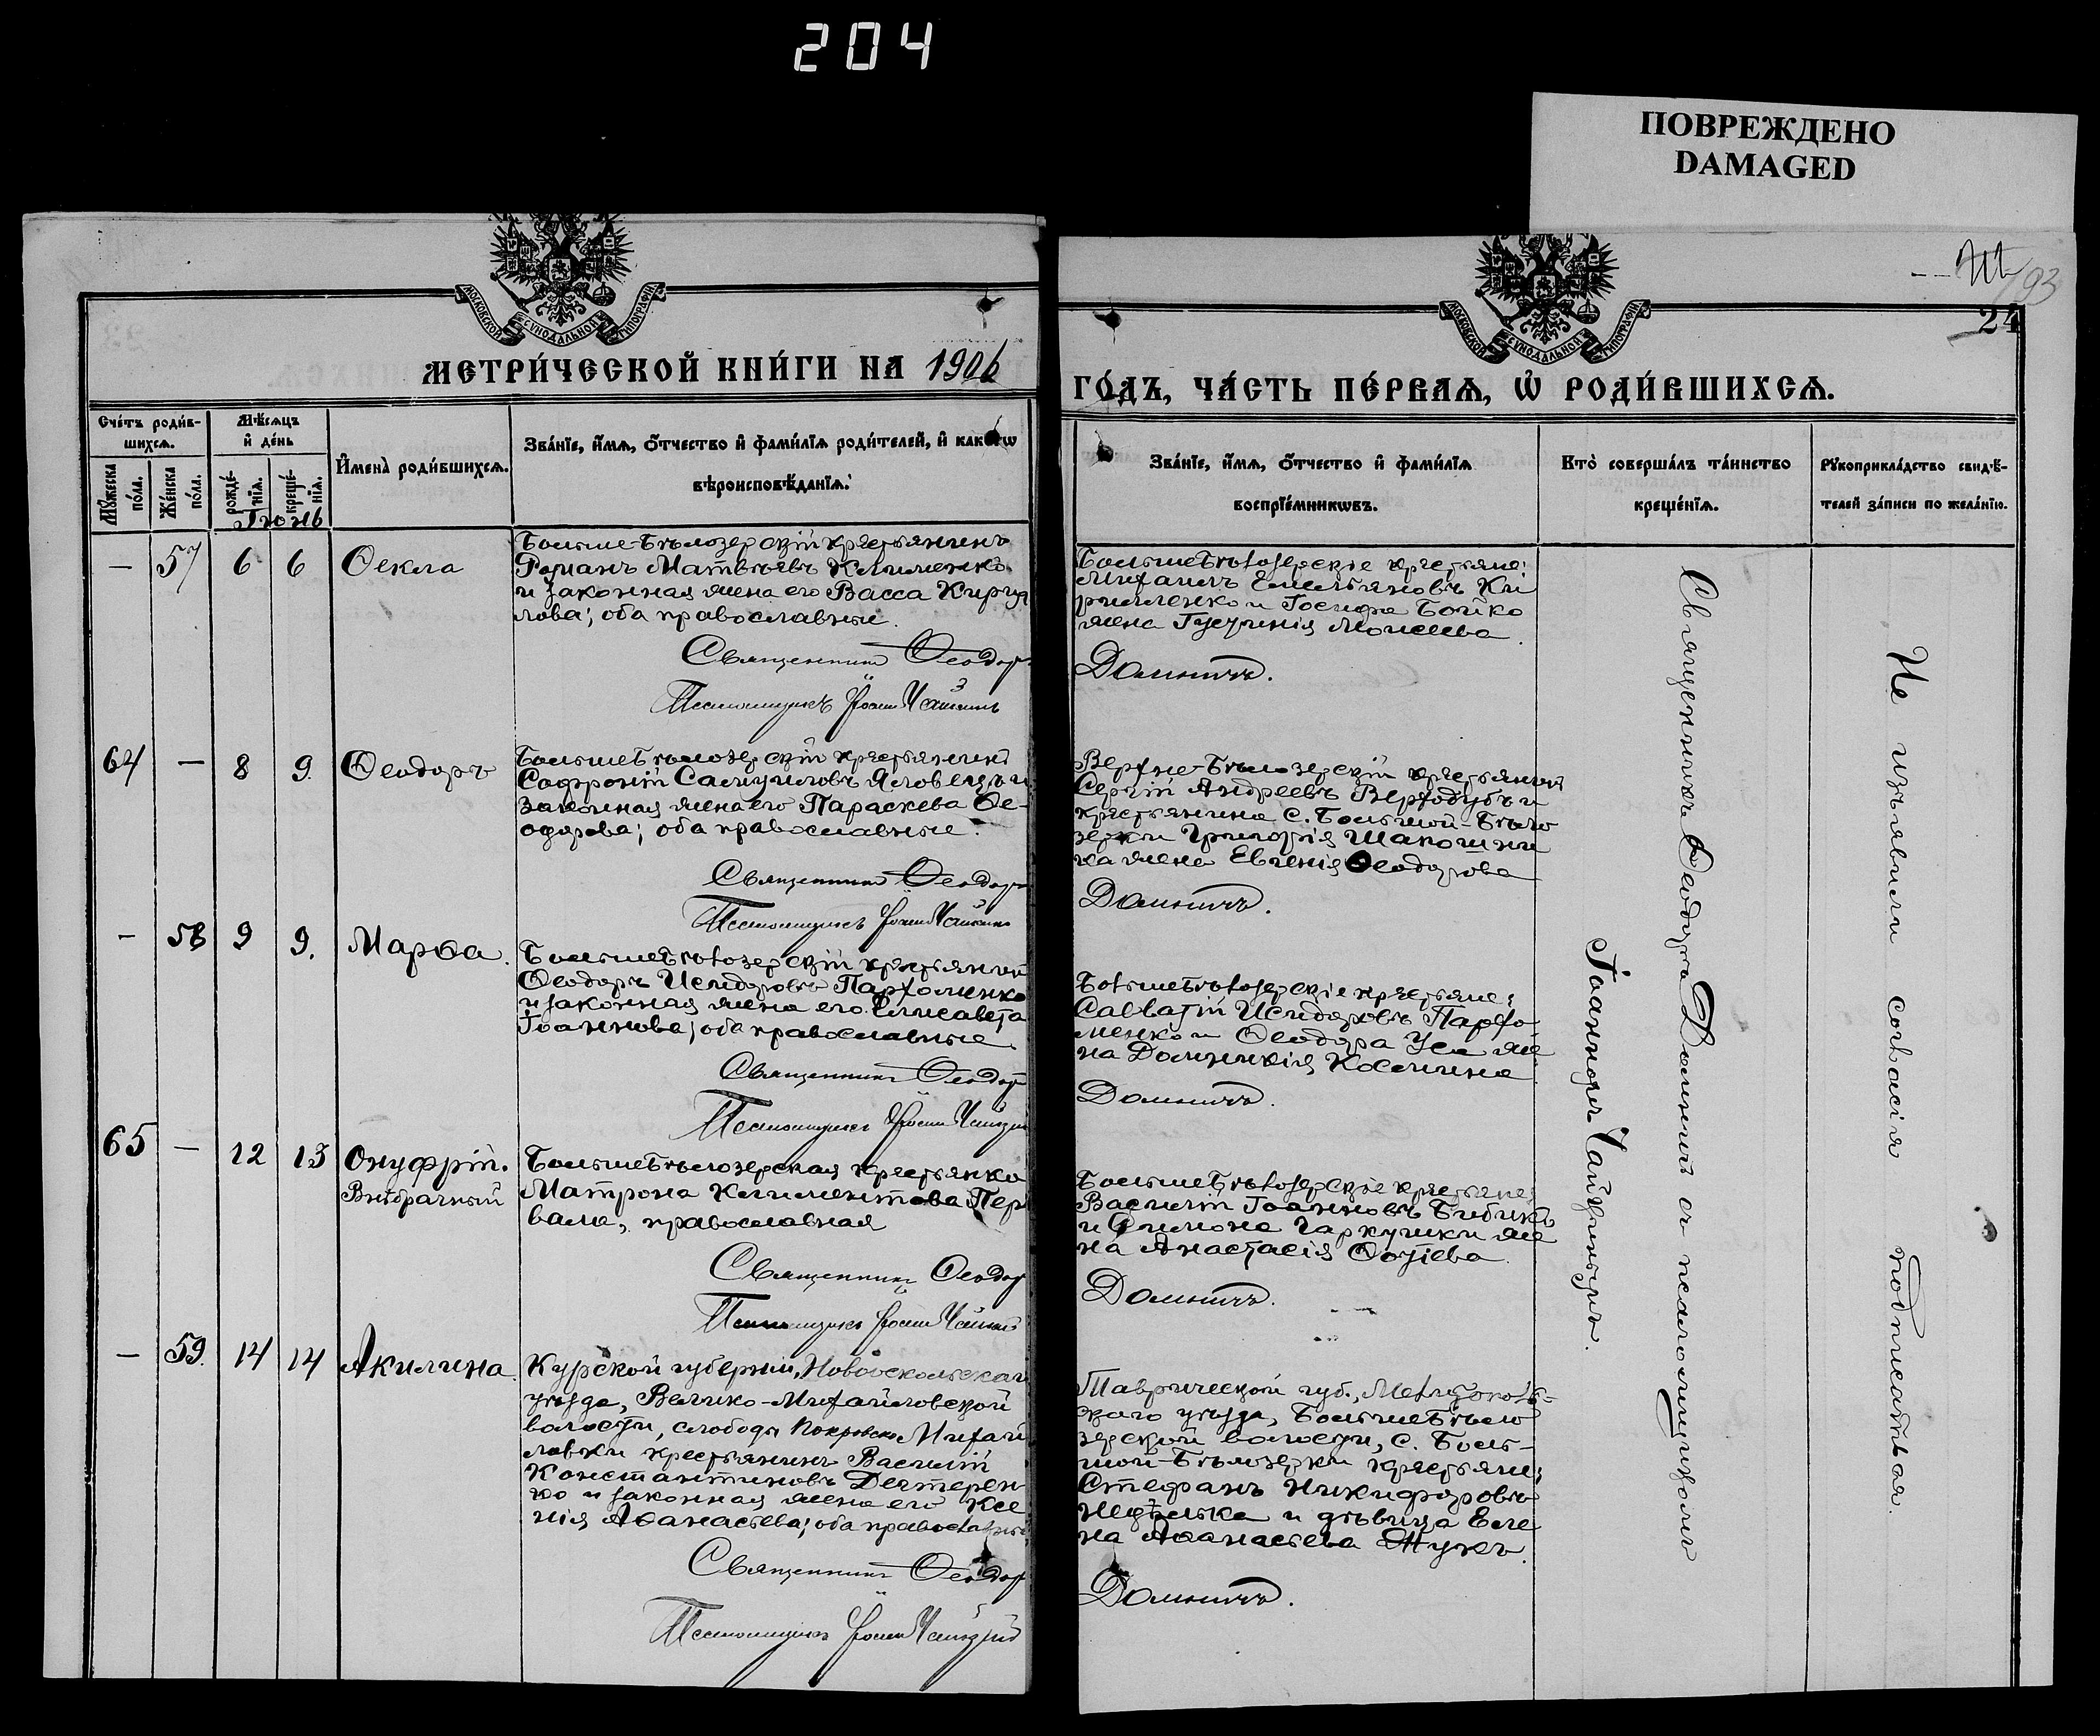 204
ПОВРЕЖДЕНО
DAMAGED
93
24
МОСКОВСКОЙ СѴНОДАЛЬНОЙ ТИПОГРАФІИ
МОСКОВСКОЙ СѴНОДАЛЬНОЙ ТИПОГРАФІИ
МЕТРИ́ЧЕСКОЙ КНИ́ГИ НА 1906
ГО́ДЪ, ЧА́СТЬ ПЕ́РВАѦ, Ѡ҆ РОДИ́ВШИХСѦ.
Сче́тъ роди́в-
шихсѧ.
Мꙋ́жеска
по́ла.
Же́нска
по́ла.
Мѣ́сѧцъ
и҆ де́нь
рожде́-
нїѧ.
креще́-
нїѧ.
Іюнь
И҆мена̀ роди́вшихсѧ.
Зва́нїе, и҆́мѧ, ѻ҆́тчество и҆ фами́лїѧ роди́телей, и҆ како́гѡ
вѣроисповѣ́данїѧ.
Зва́нїе, и҆́мѧ, ѻ҆́тчество и҆ фами́лїѧ
воспрїе́мникѡвъ.
Кто̀ соверша́лъ та́инство
креще́нїѧ.
Рꙋкоприкла́дство свидѣ́-
телей за́писи по жела́нїю.
— 57 6 6 Ѳекла
Больше-Бѣлозерскій крестьянинъ
Романъ Матвѣевъ Клименко
и законная жена его Васса Кирил
лова; оба православные.
Священникъ Ѳеодоръ
Псаломщикъ Іоаннъ
Большебѣлозерскіе крестьяне:
Михаилъ Емельяновъ Ки
риленко и Іосифа Бойко
жена Гусинія Моисеева.
Домничъ.
64 — 8 9. Ѳеодоръ
Большебѣлозерскій крестьянинъ
Софроній Самуиловъ Яловецъ и
законная жена его Параскева Ѳе-
одорова; оба православные.
Священникъ Ѳеодоръ
Псаломщикъ Іоаннъ
Верхне-Бѣлозерскій крестьянинъ
Сергій Андреевъ Верходубъ и
крестьянина с. Большой-Бѣло
зерки Григорія Шапошни
ка жена Евгенія Ѳеодорова
Домничъ.
— 58 9 9. Марѳа.
Большебѣлозерскій крестьянинъ
Ѳеодоръ Исидоровъ Пархоменко
и законная жена его Елисавета
Іоаннова; оба православные.
Священникъ Ѳеодоръ
Псаломщикъ Іоаннъ
Большебѣлозерскіе крестьяне:
Савватій Исидоровъ Пархо
менко и Ѳеодора Уса же
на Домникія Косьмина.
Домничъ.
65 — 12 13 Онуфрій.
Внѣбрачный
Большебѣлозерская крестьянка
Матрона Климентова Пер
вала, православная
Священникъ Ѳеодоръ
Псаломщикъ Іоаннъ
Большебѣлозерскіе крестьяне:
Василій Іоанновъ Бибикъ
и Филмона Гаркушки же
на Анастасія Ѳотіева.
Домничъ.
— 59. 14 14 Акилина.
Курской губерніи, Новооскольскаго
уѣзда, Велико-Михайловской
волости, слободы Покровско Михай
ловки крестьянинъ Василій
Константиновъ Дехтерен
ко и законная жена его Ксе
нія Аѳанасьева; оба православные
Священникъ Ѳеодоръ
Псаломщикъ Іоаннъ
Таврической губ., Мелитополь-
скаго уѣзда, Большебѣло
зерской волости, с. Боль-
шой-Бѣлозерки крестьяне:
Стефанъ Никифоровъ
Недѣлька и дѣвица Еле
на Аѳанасьева Жукъ.
Домничъ.
Священникъ Ѳеодоръ Домничъ съ псаломщикомъ
Іоанномъ
Не изъявили согласія подписаться.